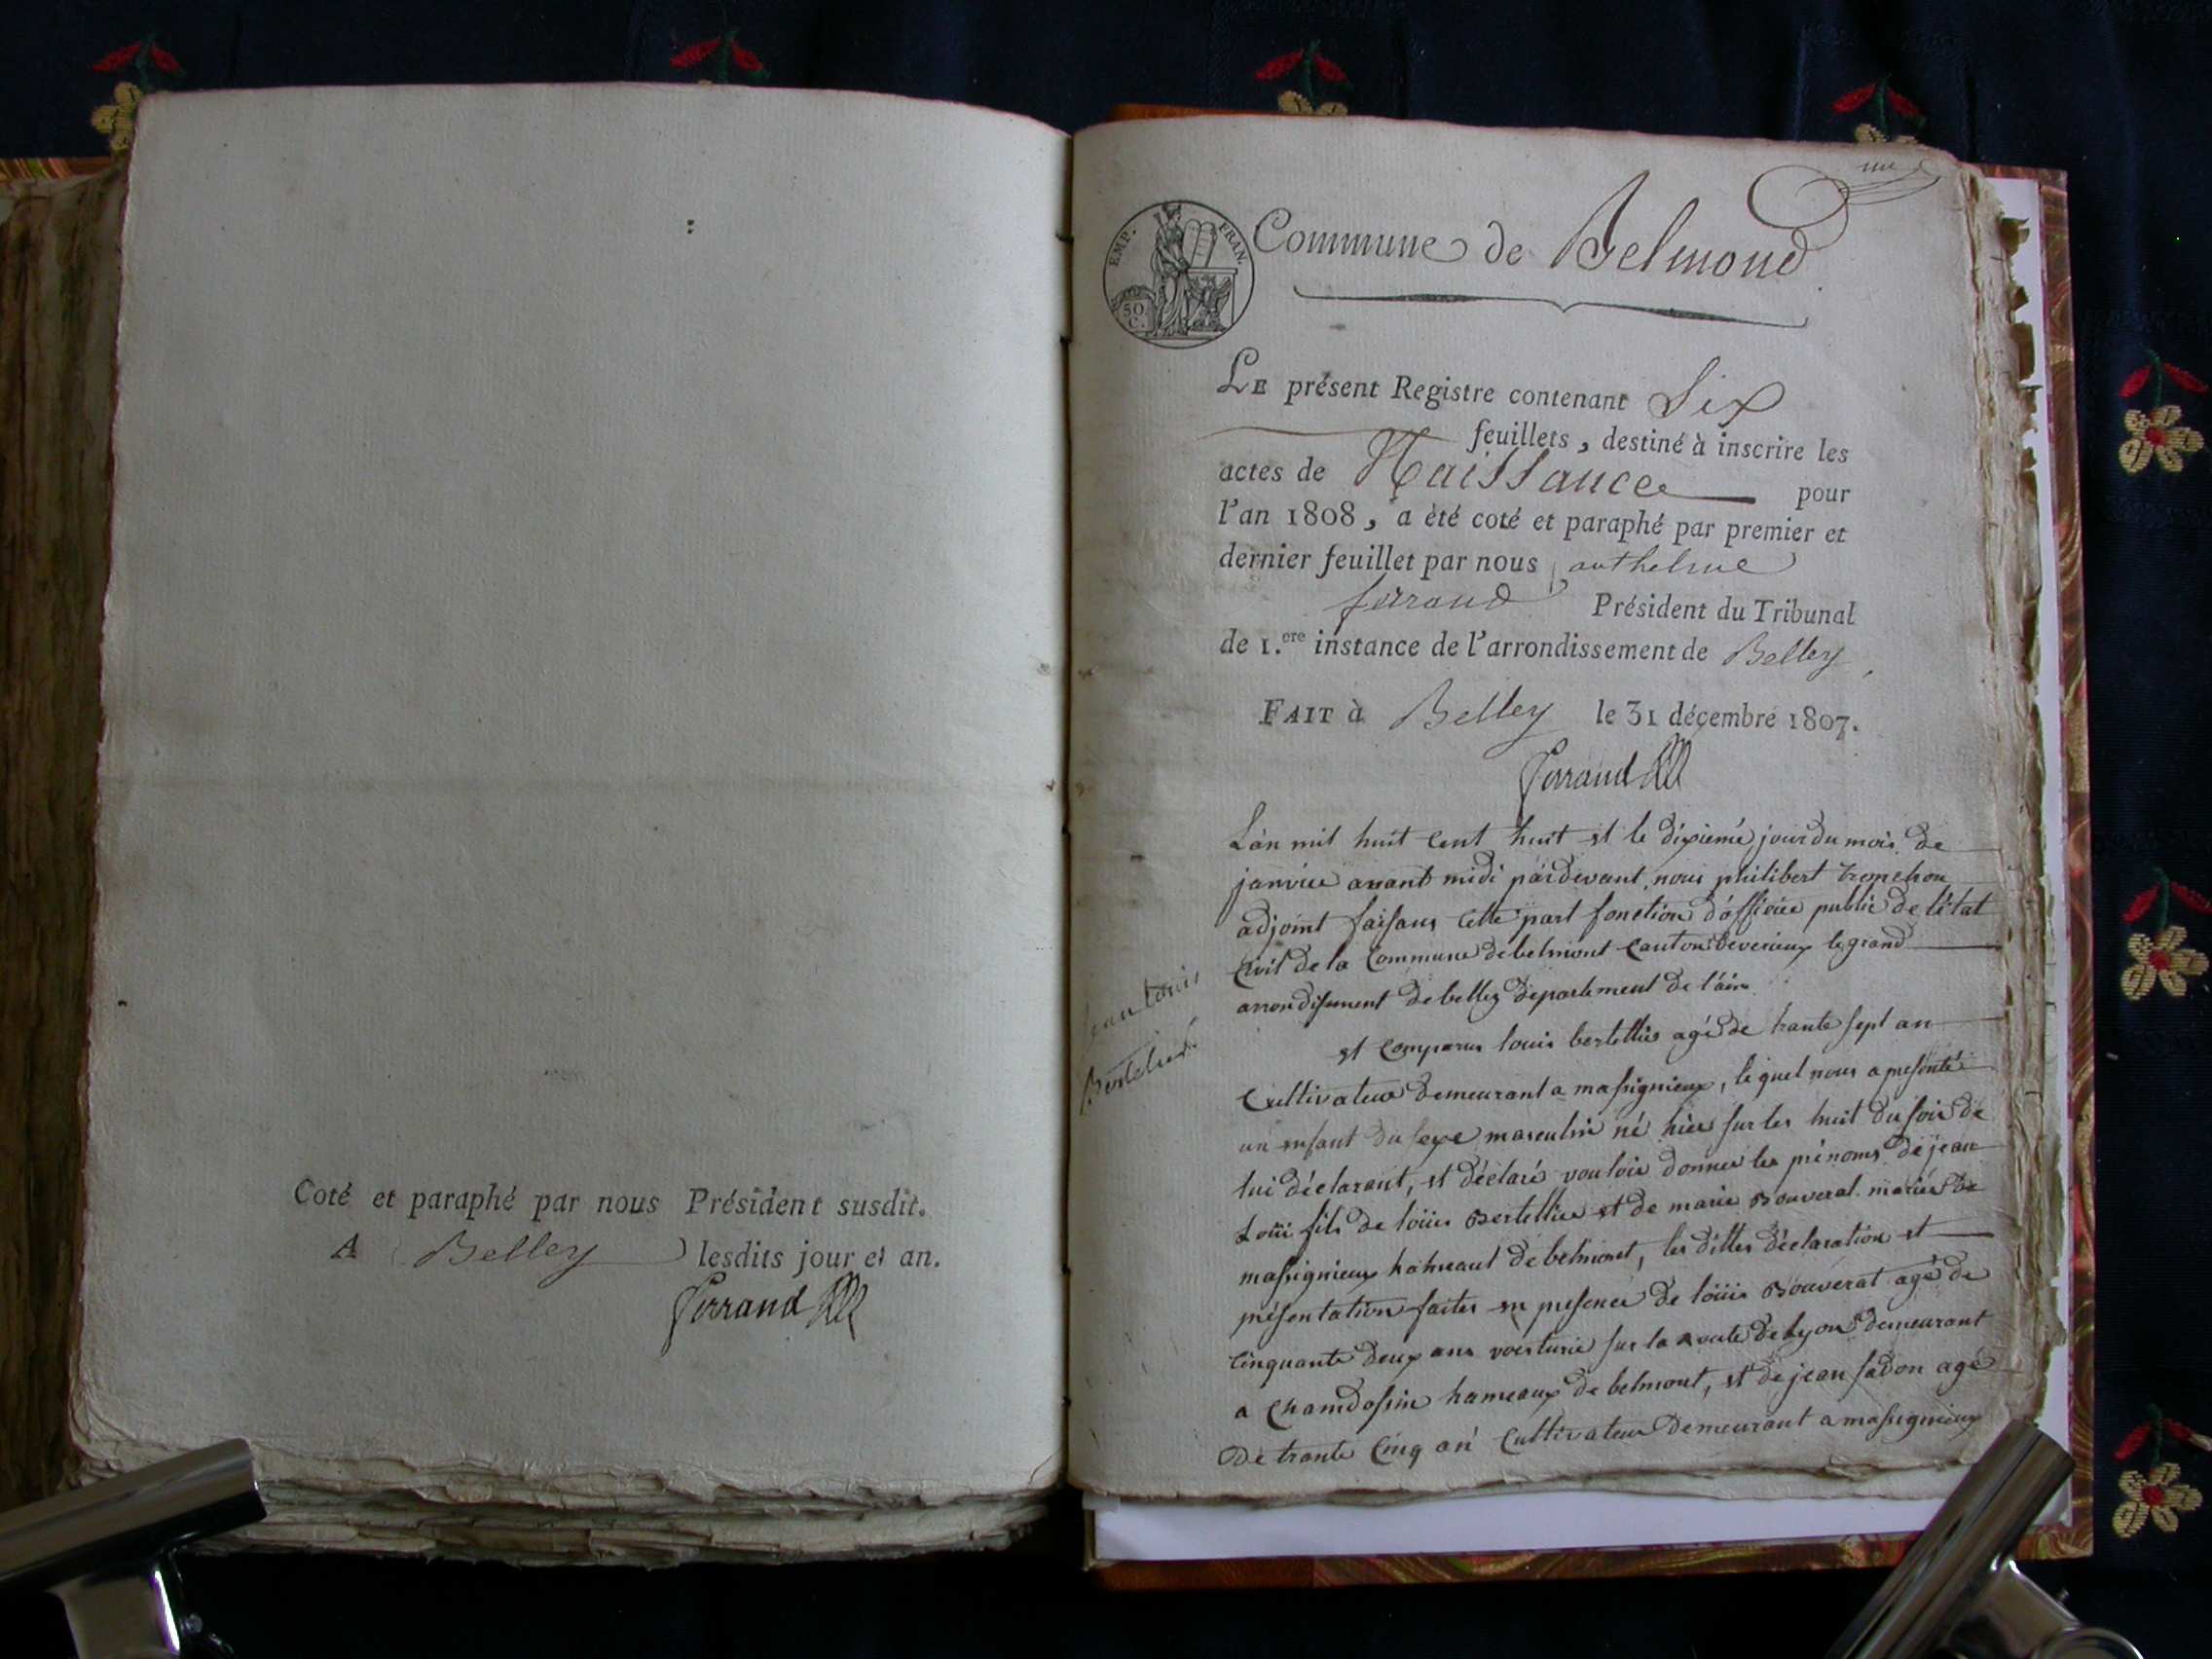 Coté et paraphé par nous Président susdit.
A Belley lesdits jour et an.
Ferrand
une
EMP. FRAN.
50 C.
Commune de Belmond
LE présent Registre contenant Six
feuillets, destiné à inscrire les
actes de Naissance pour
l'an 1808, a èté coté et paraphé par premier et
dernier feuillet par nous anthelme
ferrand Président du Tribunal
de 1.ere instance de l'arrondissement de Belley
FAIT à Belley le 31 décembre 1807.
Ferrand
L'an mil huit cent huit et le dixiemé jour du mois de
janvier avant midi pardevant nous philibert tronchon
adjoint faisans cette part fonction d'officier public de l'état
civil de la Commune de belmont canton de virieux le grand
arrondisement de belley departement de l'ain
Jean Louis
Bertelier
et comparus louis bertellier agé de trante sept an
Cultivateur demeurant a massignieux, lequel nous a presenté
un enfant du sexe masculin né hier sur les huit du soir de
lui déclarant, et déclaré vouloir donner les prénoms de jean
Loüi fils de loüis Bertellier et de marie Bouverat mariés de
massignieux hameaut de belmont, les dittes déclaration et
présentation faites en presence de loüis Bouverat agé de
cinquante deux ans voiturié sur la route de lyon demeurant
a Chamdossin hameaux de belmont, et de jean fadon agé
de trante cinq an cultivateur demeurant a massignieux